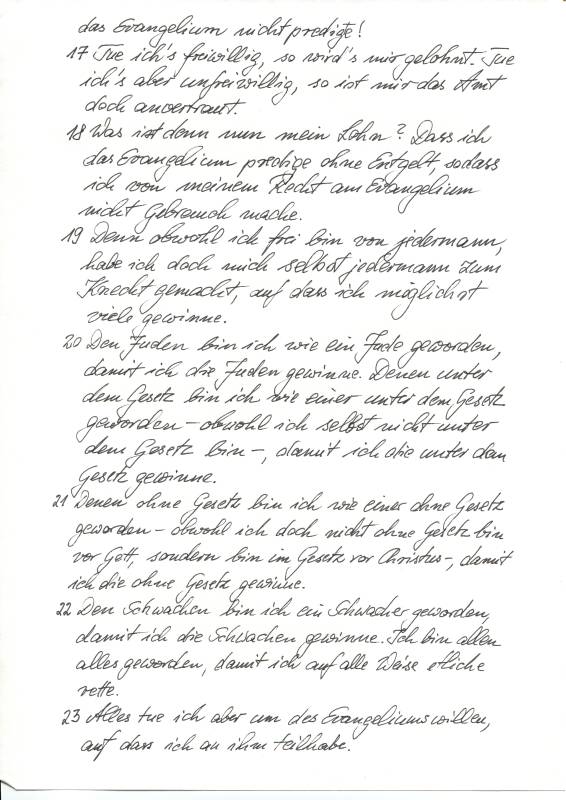 das Evangelium nicht predigte!
17 Tue ich's freiwillig, so wird's mir gelohnt. Tue
ich's aber unfreiwillig, so ist mir das Amt
doch anvertraut.
18 Was ist denn nun mein Lohn? Dass ich
das Evangelium predige ohne Entgelt, sodass
ich von meinem Recht am Evangelium
nicht Gebrauch mache.
19 Denn obwohl ich frei bin von jedermann,
habe ich doch mich selbst jedermann zum
Knecht gemacht, auf dass ich möglichst
viele gewinne.
20 Den Juden bin ich wie ein Jude geworden,
damit ich die Juden gewinne. Denen unter
dem Gesetz bin ich wie einer unter dem Gesetz
geworden – obwohl ich selbst nicht unter
dem Gesetz bin –, damit ich die unter dem
Gesetz gewinne.
21 Denen ohne Gesetz bin ich wie einer ohne Gesetz
geworden – obwohl ich doch nicht ohne Gesetz bin
vor Gott, sondern bin im Gesetz vor Christus –, damit
ich die ohne Gesetz gewinne.
22 Den Schwachen bin ich ein Schwacher geworden,
damit ich die Schwachen gewinne. Ich bin allen
alles geworden, damit ich auf alle Weise etliche
rette.
23 Alles tue ich aber um des Evangeliums willen,
auf dass ich an ihm teilhabe.